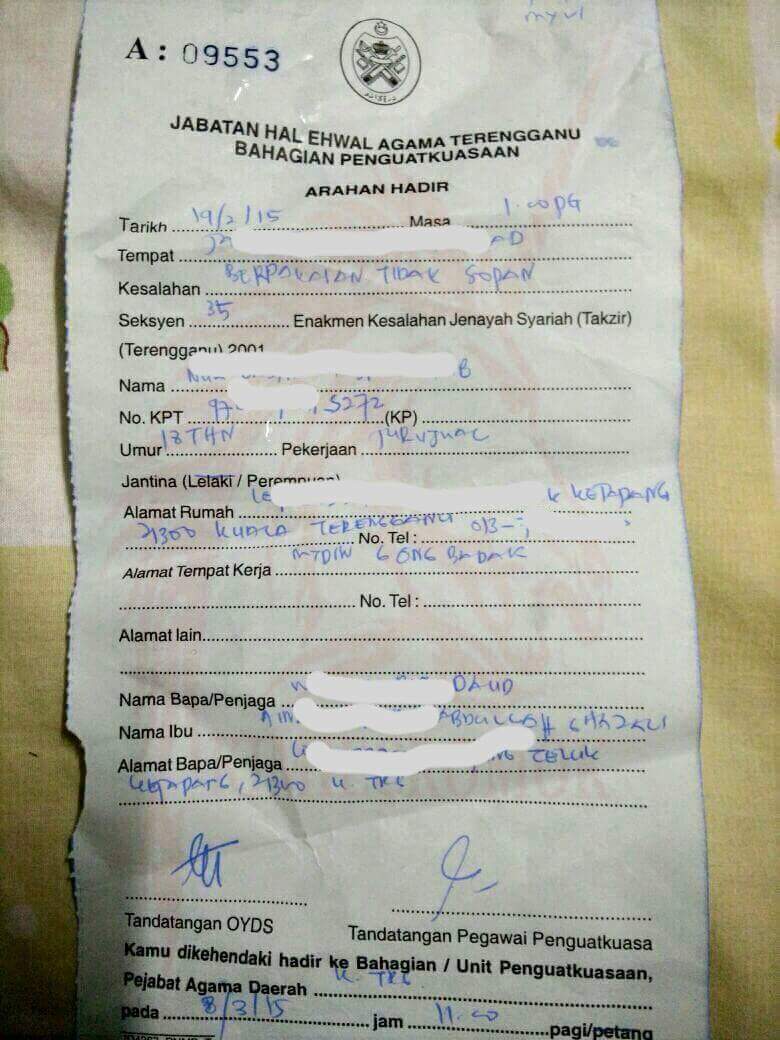 myvi
A : 09553
JABATAN HAL EHWAL AGAMA TERENGGANU
BAHAGIAN PENGUATKUASAAN
ARAHAN HADIR
Tarikh 19/2/15 Masa 1.00 PG
Tempat AD
Kesalahan BERPAKAIAN TIDAK SOPAN
Seksyen 35 Enakmen Kesalahan Jenayah Syariah (Takzir)
(Terengganu) 2001
Nama B
No. KPT 97 5272 (KP)
Umur 18 THN Pekerjaan JURUJUAL
Jantina (Lelaki / Perempuan)
Alamat Rumah K KETAPANG
21300 KUALA TERENGGANU No. Tel : 013-
Alamat Tempat Kerja MYDIN GONG BADAK
No. Tel :
Alamat lain
Nama Bapa/Penjaga DAUD
Nama Ibu ABDULLAH GHAZALI
Alamat Bapa/Penjaga TELUK
KETAPANG, 21300 K. TRG
Tandatangan OYDS Tandatangan Pegawai Penguatkuasa
Kamu dikehendaki hadir ke Bahagian / Unit Penguatkuasaan,
Pejabat Agama Daerah K. TRG
pada 8/3/15 jam 11.00 pagi/petang